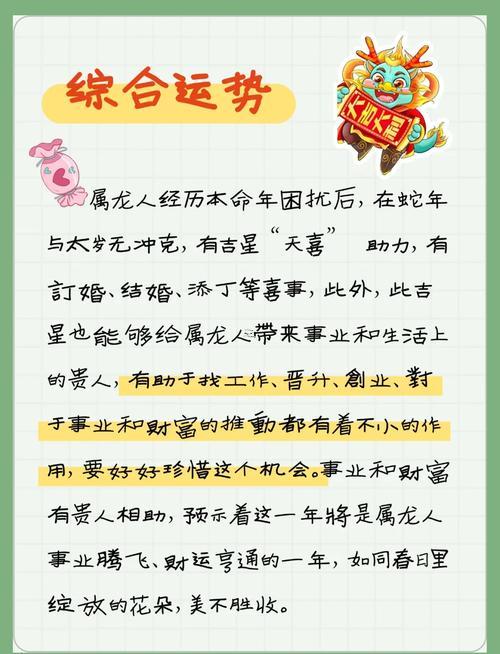 综合运势
大吉大利
属龙人经历本命年困扰后,在蛇年
与太岁无冲克,有吉星“天喜” 助力,有
訂婚、结婚、添丁等喜事,此外,此吉
星也能够给属龙人帶来事业和生活上
的贵人,有助于找工作、晋升、創业、對
于事业和财富的推動都有着不小的作
用,要好好珍惜这个机会。事业和财富
有贵人相助,预示着这一年將是属龙人
事业腾飞、财运亨通的一年,如同春日里
绽放的花朵,美不胜收。